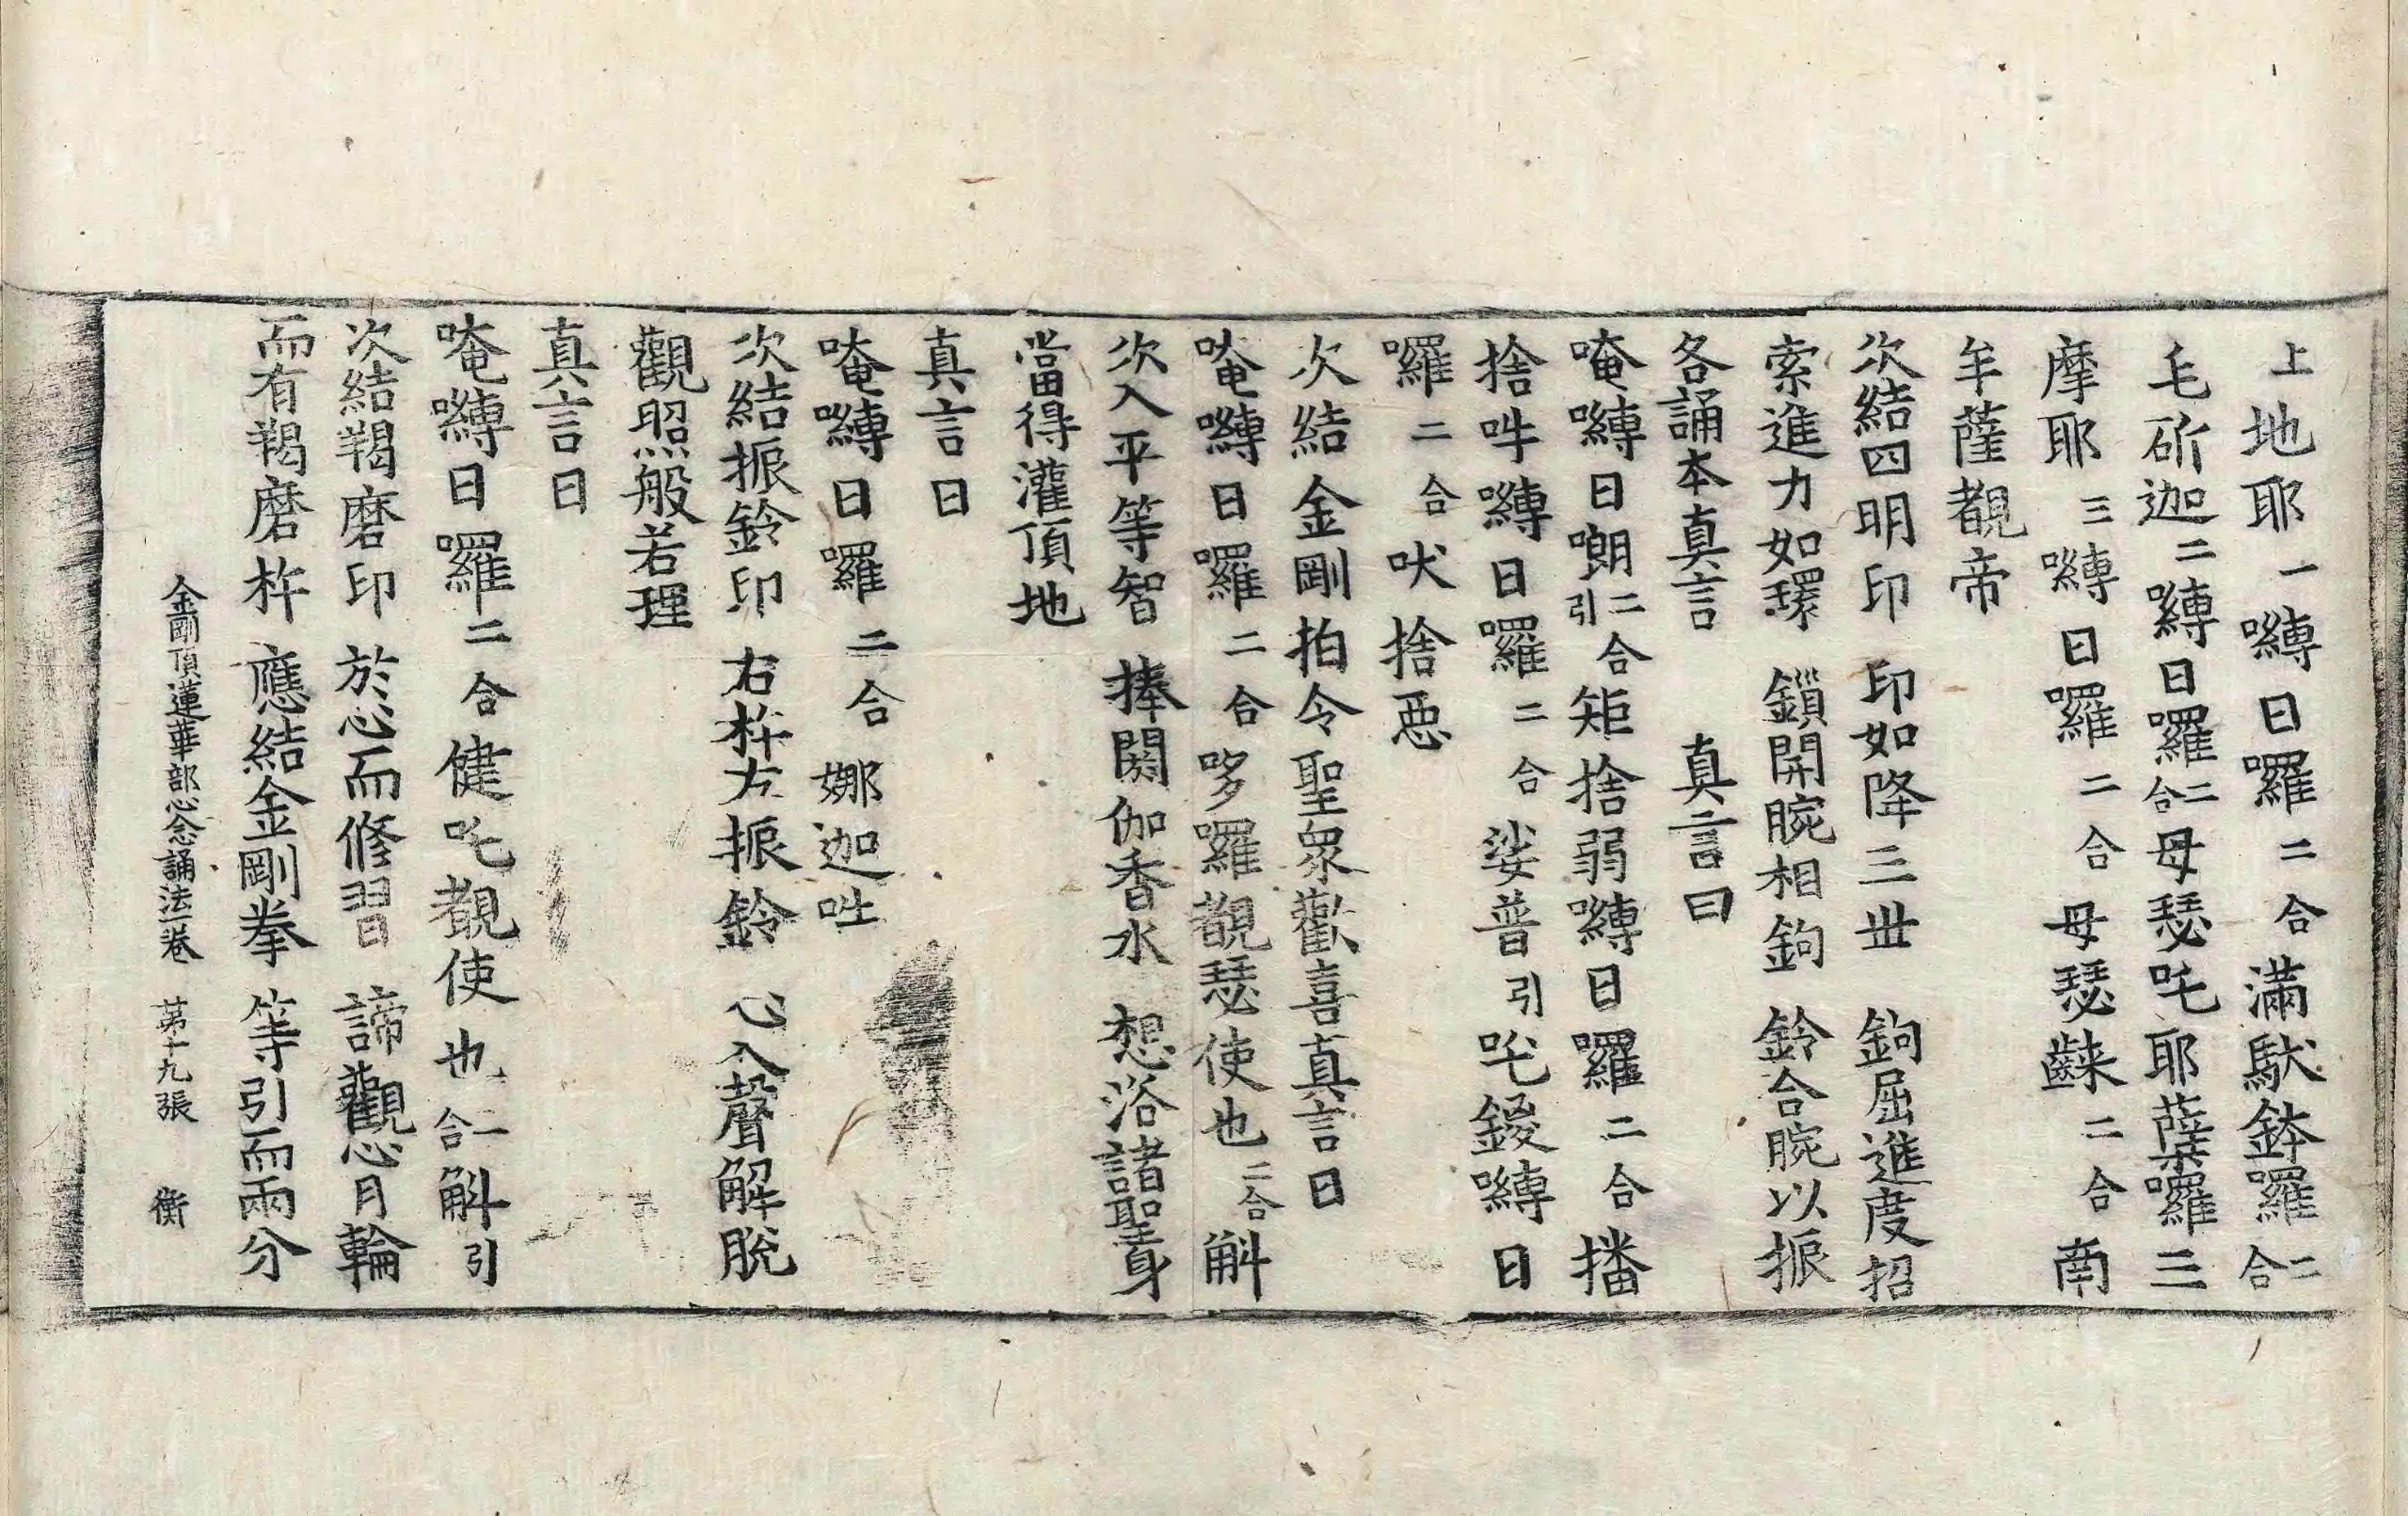 上地耶一嚩日囉二合滿馱鉢囉二合
毛斫迦二嚩日囉二合母瑟吒耶薩囉三
摩耶三嚩日囉二合母瑟齂二合南
牟薩覩帝
次結四明印 印如降三世 鉤屈進度招
索進力如環 鎖開腕相鉤 鈴合腕以振
各誦本真言 真言曰
唵嚩日囉二合引矩捨弱嚩日囉二合播
捨吽嚩日囉二合娑普引吒鑁嚩日
囉二合吠捨惡
次結金剛拍令聖眾歡喜真言曰
唵嚩日囉二合哆囉覩瑟使也二合斛
次入平等智 捧閼伽香水 想浴諸聖身
當得灌頂地
真言曰
唵嚩日囉二合娜迦吽
次結振鈴印 右杵左振鈴 心入聲解脫
觀照般若理
真言曰
唵嚩日囉二合健吒覩使也二合斛引
次結羯磨印 於心而修習 諦觀心月輪
而有羯磨杵 應結金剛拳 等引而兩分
金剛頂蓮華部心念誦法一卷 第十九張 衡